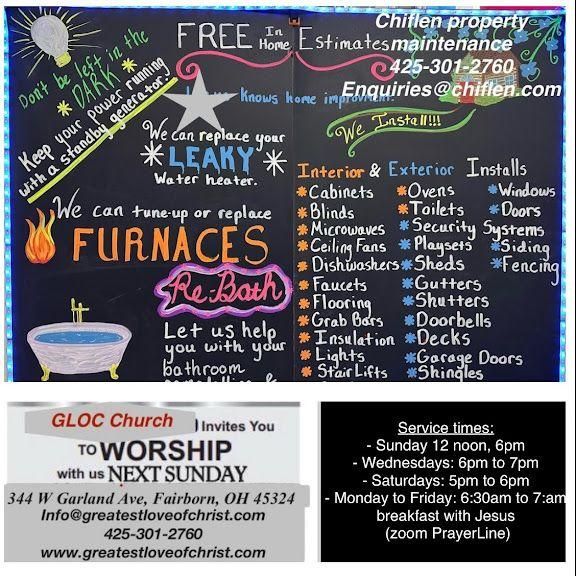 Chiflen property
maintenance
425-301-2760
Enquiries@chiflen.com
FREE In Home Estimates
Don't be left in the
DARK
Keep your power running
with a standby generator!
Knows home improvement.
We can replace your
LEAKY
Water heater.
We can tune-up or replace
FURNACES
Re:Bath
Let us help
you with your
bathroom
We Install!!!
Interior & Exterior Installs
Cabinets
Blinds
Microwaves
Ceiling Fans
Dishwashers
Faucets
Flooring
Grab Bars
Insulation
Lights
Stair Lifts
Ovens
Toilets
Security Systems
Playsets
Sheds
Gutters
Shutters
Doorbells
Decks
Garage Doors
Shingles
Windows
Doors
Siding
Fencing
GLOC Church
Invites You
TO WORSHIP
with us NEXT SUNDAY
344 W Garland Ave, Fairborn, OH 45324
Info@greatestloveofchrist.com
425-301-2760
www.greatestloveofchrist.com
Service times:
- Sunday 12 noon, 6pm
- Wednesdays: 6pm to 7pm
- Saturdays: 5pm to 6pm
- Monday to Friday: 6:30am to 7:am
breakfast with Jesus
(zoom PrayerLine)